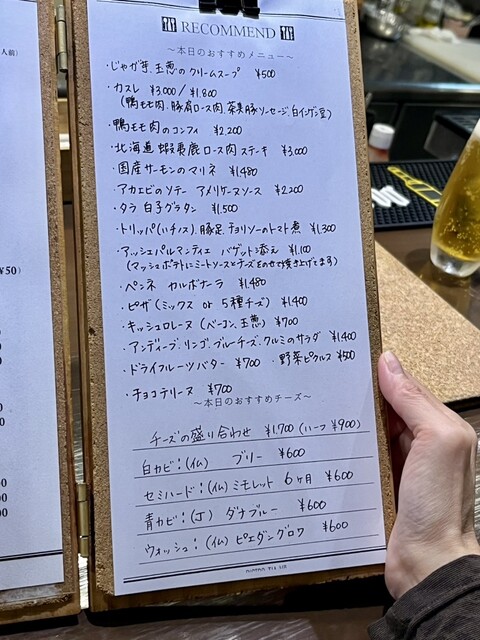 RECOMMEND
～本日のおすすめメニュー～
・じゃが芋、玉葱のクリームスープ ¥500
・カスレ ¥3,000/¥1,800
(鴨モモ肉、豚肩ロース肉、茶美豚ソーセージ、白インゲン豆)
・鴨モモ肉のコンフィ ¥2,200
・北海道 蝦夷鹿 ロース肉 ステーキ ¥3,000
・国産サーモンのマリネ ¥1,480
・アカエビのソテー アメリケーヌソース ¥2,200
・タラ 白子グラタン ¥1,500
・トリッパ(ハチノス)、豚足、チョリソーのトマト煮 ¥1,300
・アッシェパルマンティエ バゲット添え ¥1,100
(マッシュポテトにミートソースとチーズをのせて焼き上げてます)
・ペンネ カルボナーラ ¥1,480
・ピザ(ミックス or 5種チーズ) ¥1,400
・キッシュロレーヌ(ベーコン、玉葱) ¥700
・アンディーブ、リンゴ、ブルーチーズ、クルミのサラダ ¥1,400
・ドライフルーツバター ¥700 ・野菜ピクルス ¥500
・チョコテリーヌ ¥700
～本日のおすすめチーズ～
チーズの盛り合わせ ¥1,700 (ハーフ ¥900)
白カビ:(仏) ブリー ¥600
セミハード:(仏)ミモレット 6ヶ月 ¥600
青カビ:(J) ダナブルー ¥600
ウォッシュ:(仏)ピエダングロワ ¥600
人前)
¥50)